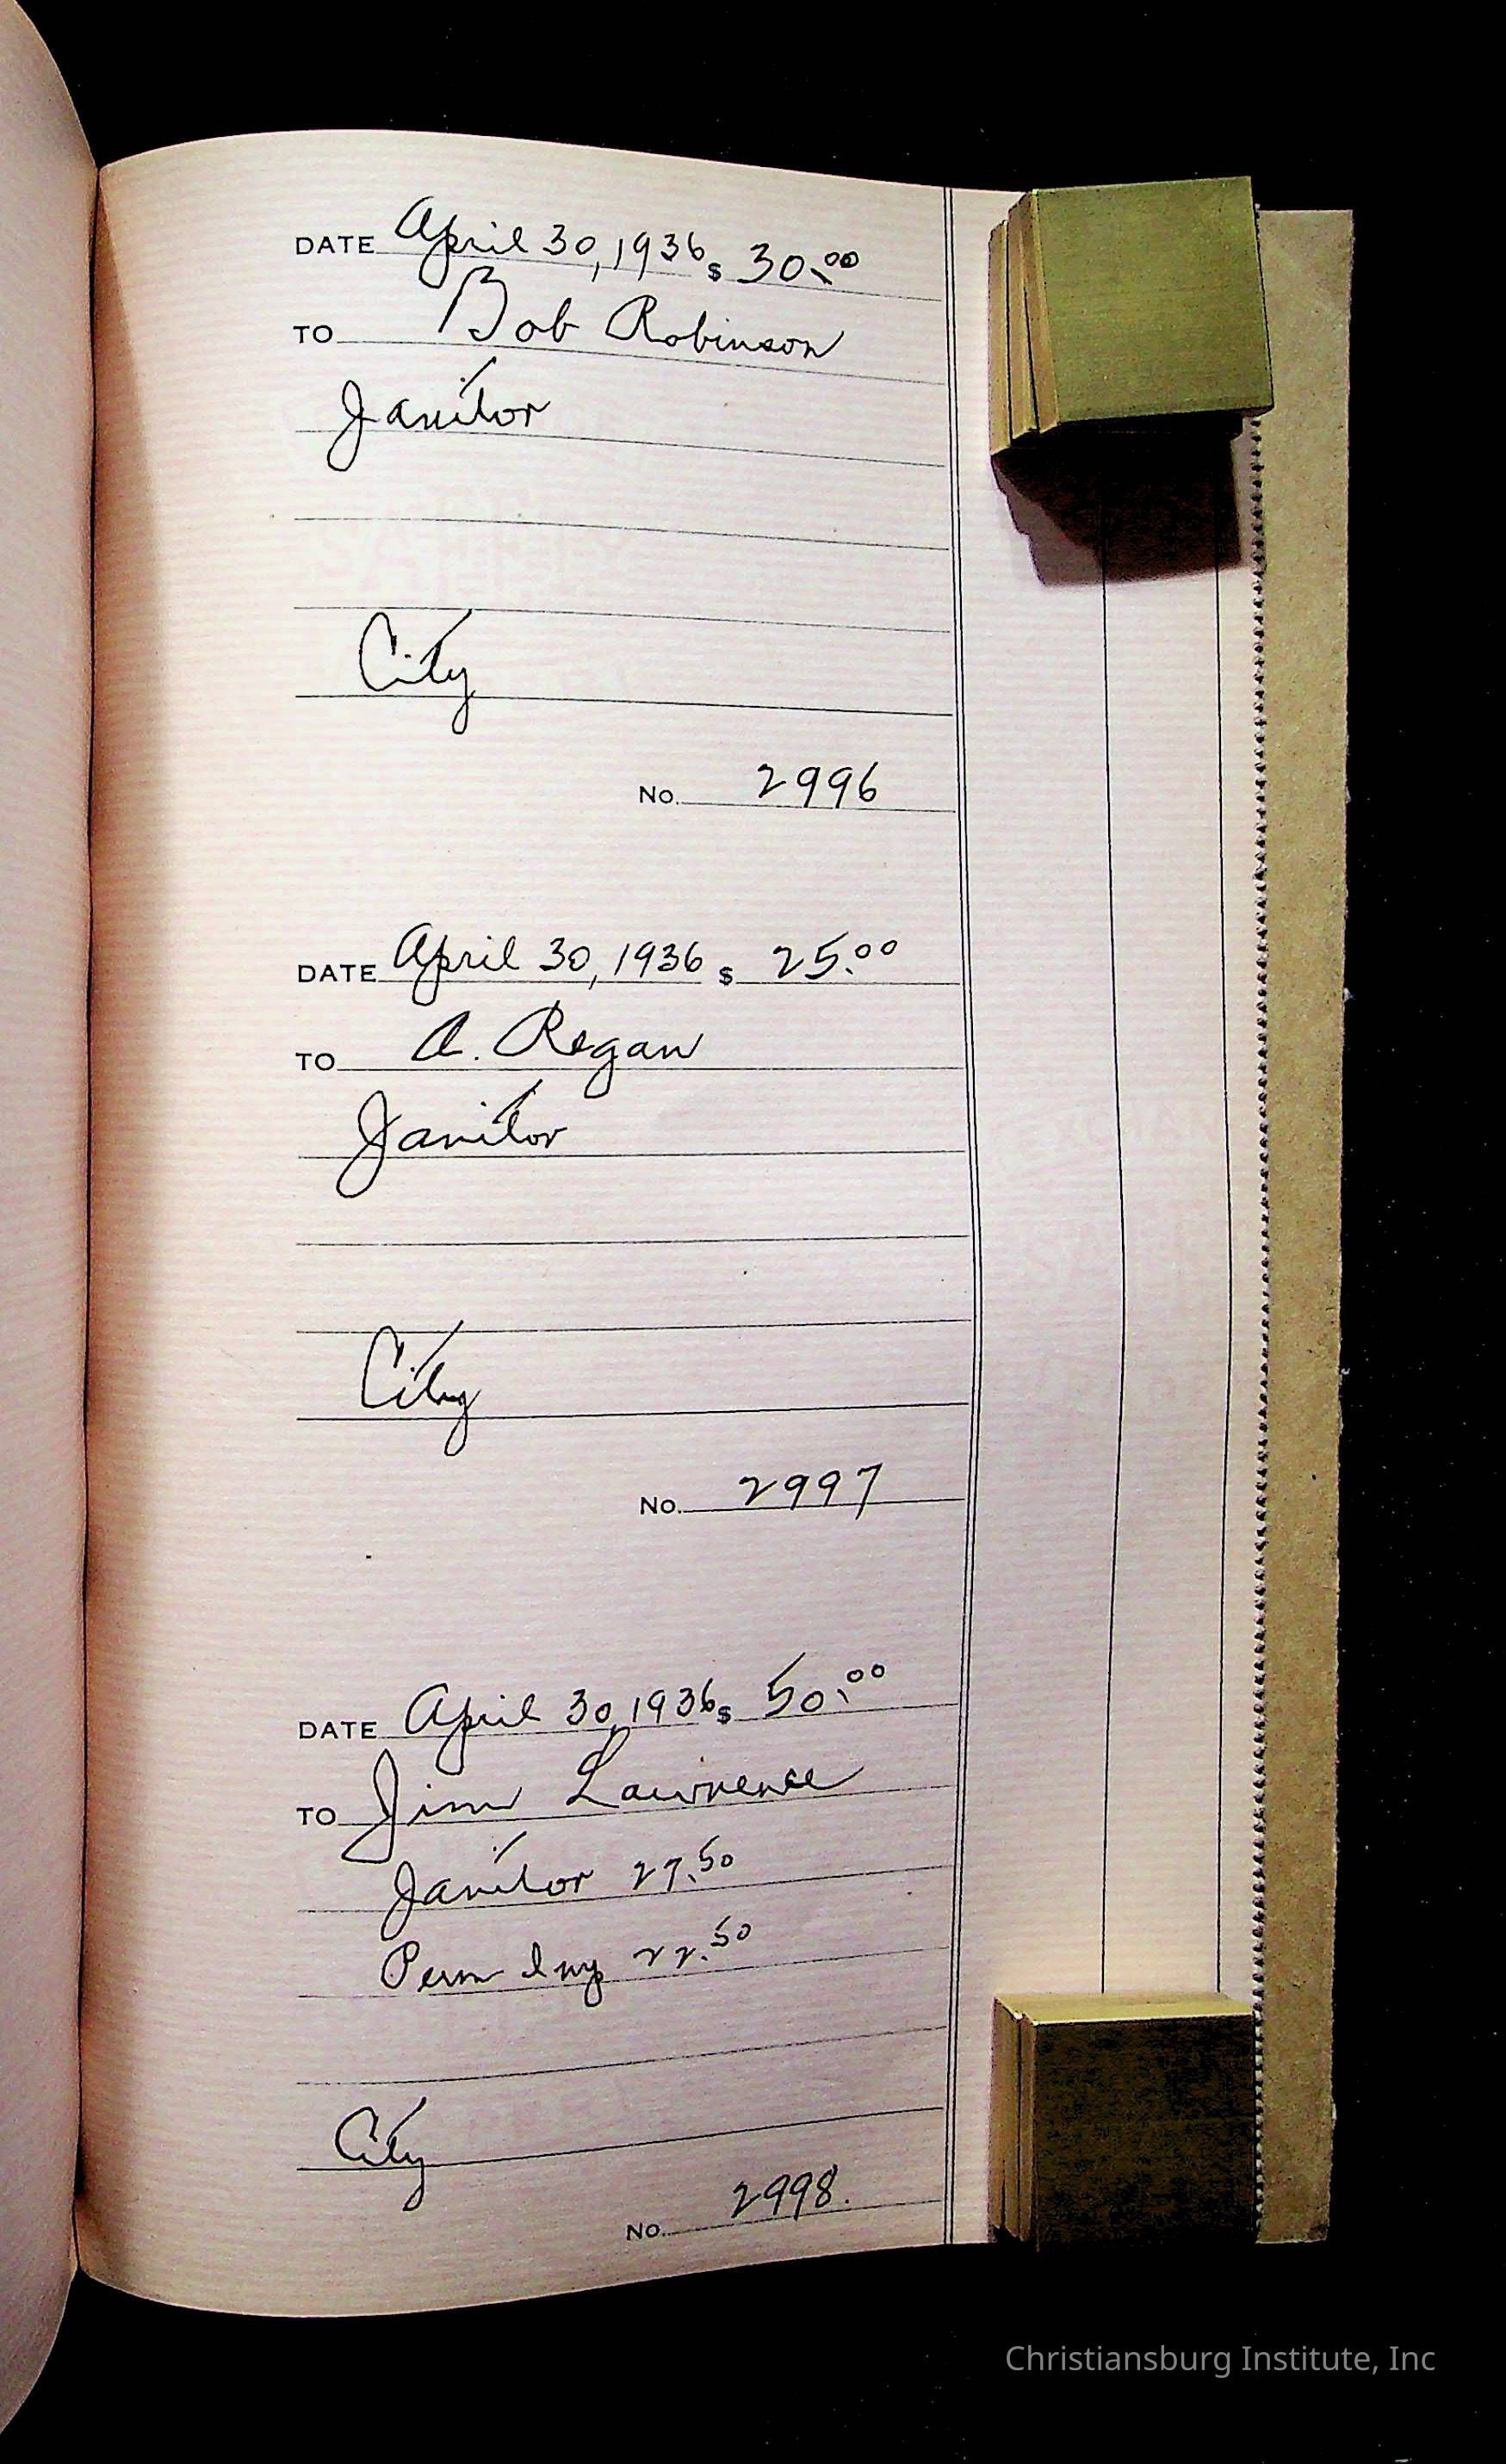 DATE April 30, 1936 $ 30.00
TO Bob Robinson
Janitor
City
No. 2996
DATE April 30, 1936 $ 25.00
TO A. Regan
Janitor
City
No. 2997
DATE April 30, 1936 $ 50.00
TO Jim Lawrence
Janitor 27.50
Perm Imp 22.50
City
No. 2998.
Christiansburg Institute, Inc